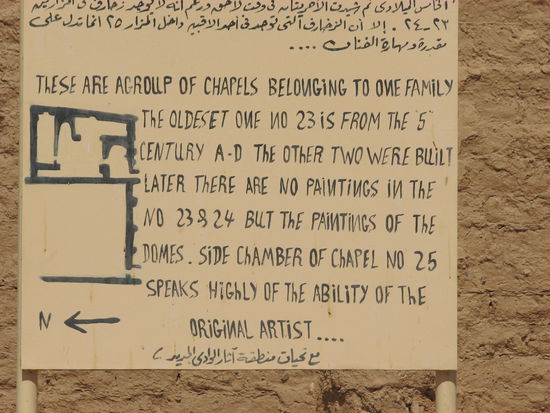 الخامس الميلادى ثم شيدت الأخريتان فى وقت لاحق ورغم انه لا توجد زخارف فى المزارين
٢٣-٢٤ . إلا أن الزخارف التى توجد فى أحد الاقبية داخل المزار ٢٥ انما تدل على
مقدرة ومهارة الفنان ....
THESE ARE AGROUP OF CHAPELS BELONGING TO ONE FAMILY
THE OLDESET ONE NO 23 IS FROM THE 5
CENTURY A-D THE OTHER TWO WERE BUILT
LATER THERE ARE NO PAINTINGS IN THE
NO 23 & 24 BUT THE PAINTINGS OF THE
DOMES. SIDE CHAMBER OF CHAPEL NO 25
SPEAKS HIGHLY OF THE ABILITY OF THE
N
ORIGINAL ARTIST....
مع تحيات منطقة آثار الوادى الجديد